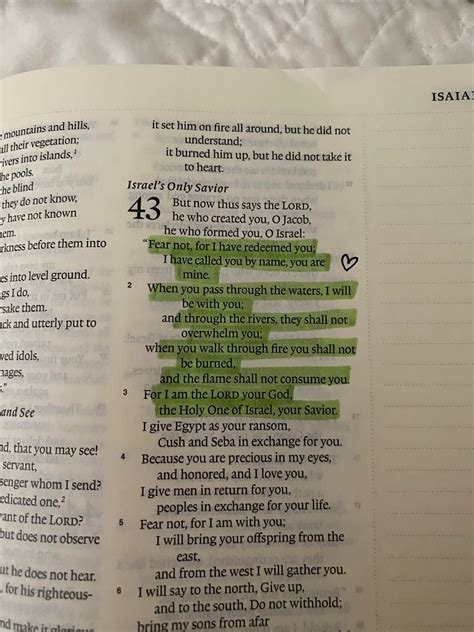 ISAIA
mountains and hills,
all their vegetation;
rivers into islands,¹
he pools.
he blind
they do not know,
y have not known
em.
rkness before them into
es into level ground.
gs I do,
rsake them.
ack and utterly put to
ved idols,
nages,
s."
and See
nd, that you may see!
servant,
senger whom I send?
edicated one,²
ant of the LORD?
but does not observe
ut he does not hear.
, for his righteous-
and make it glorious
it set him on fire all around, but he did not
understand;
it burned him up, but he did not take it
to heart.
Israel's Only Savior
43 But now thus says the LORD,
he who created you, O Jacob,
he who formed you, O Israel:
“Fear not, for I have redeemed you;
I have called you by name, you are
mine.
2 When you pass through the waters, I will
be with you;
and through the rivers, they shall not
overwhelm you;
when you walk through fire you shall not
be burned,
and the flame shall not consume you.
3 For I am the LORD your God,
the Holy One of Israel, your Savior.
I give Egypt as your ransom,
Cush and Seba in exchange for you.
4 Because you are precious in my eyes,
and honored, and I love you,
I give men in return for you,
peoples in exchange for your life.
5 Fear not, for I am with you;
I will bring your offspring from the
east,
and from the west I will gather you.
6 I will say to the north, Give up,
and to the south, Do not withhold;
bring my sons from afar